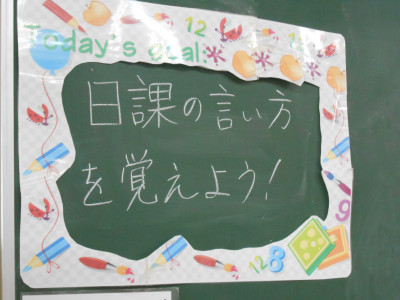 Today's goal:
日課の言い方
を覚えよう!